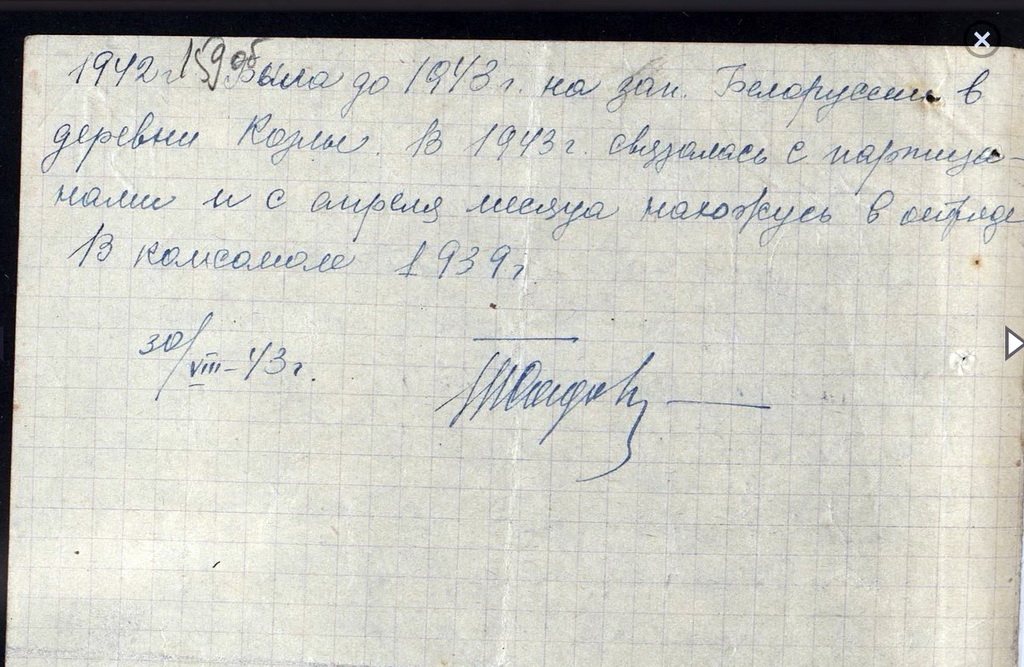 159 об
1942 г. Была до 1943 г. на зап. Белоруссии в
деревни Козлы. В 1943 г. связалась с партиза-
нами и с апреля месяца нахожусь в отряде
В комсомоле 1939 г
30/VIII-43 г.